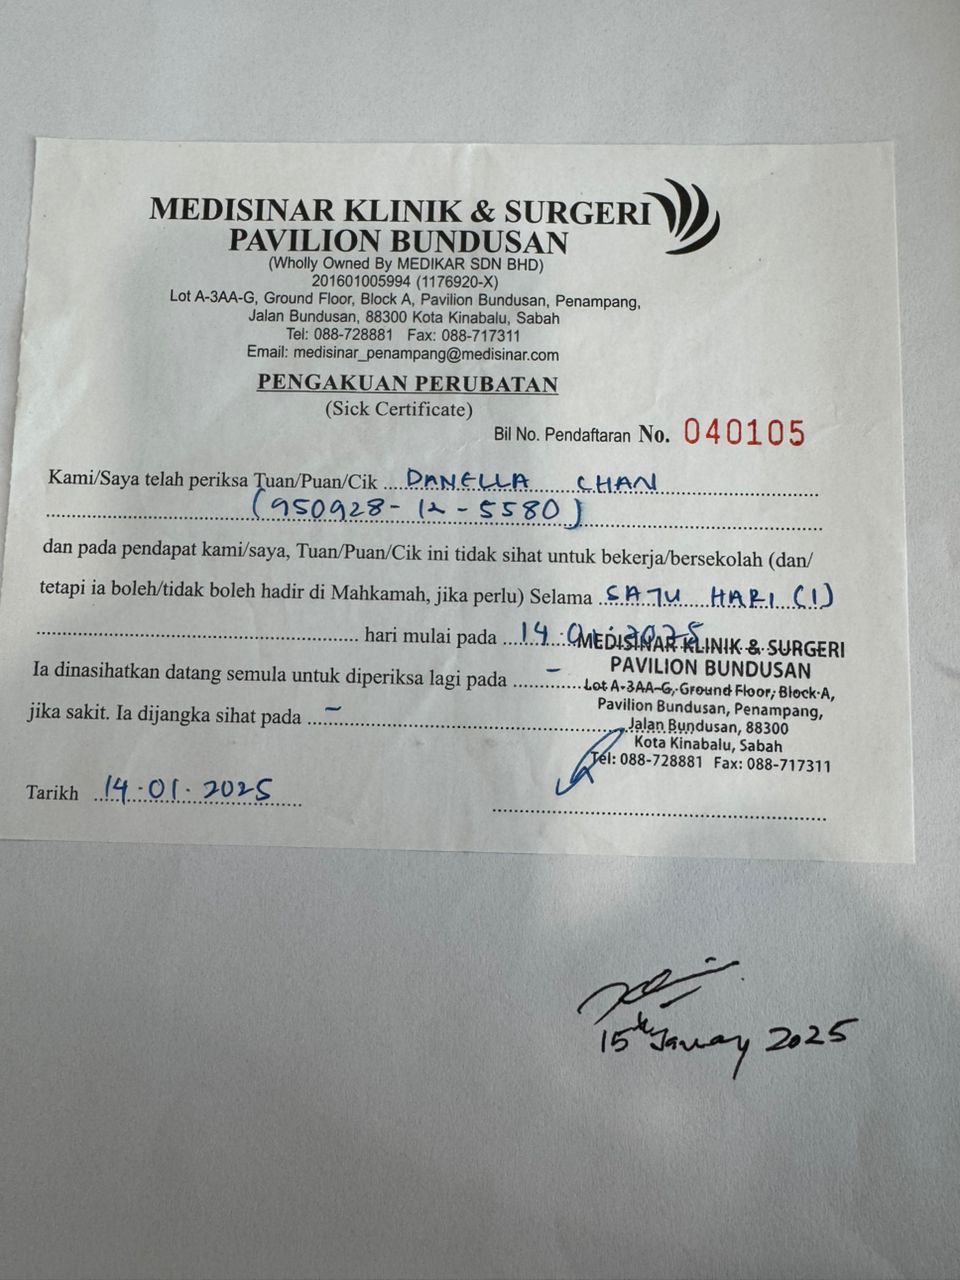 MEDISINAR KLINIK & SURGERI
PAVILION BUNDUSAN
(Wholly Owned By MEDIKAR SDN BHD)
201601005994 (1176920-X)
Lot A-3AA-G, Ground Floor, Block A, Pavilion Bundusan, Penampang,
Jalan Bundusan, 88300 Kota Kinabalu, Sabah
Tel: 088-728881 Fax: 088-717311
Email: medisinar_penampang@medisinar.com
PENGAKUAN PERUBATAN
(Sick Certificate)
Bil No. Pendaftaran No. 040105
Kami/Saya telah periksa Tuan/Puan/Cik DANELLA CHAN
(950928-12-5580)
dan pada pendapat kami/saya, Tuan/Puan/Cik ini tidak sihat untuk bekerja/bersekolah (dan/
tetapi ia boleh/tidak boleh hadir di Mahkamah, jika perlu) Selama SATU HARI (1)
hari mulai pada 14.01.2025
Ia dinasihatkan datang semula untuk diperiksa lagi pada -
jika sakit. Ia dijangka sihat pada -
MEDISINAR KLINIK & SURGERI
PAVILION BUNDUSAN
Lot A-3AA-G, Ground Floor, Block A,
Pavilion Bundusan, Penampang,
Jalan Bundusan, 88300
Kota Kinabalu, Sabah
Tel: 088-728881 Fax: 088-717311
Tarikh 14.01.2025
15th January 2025